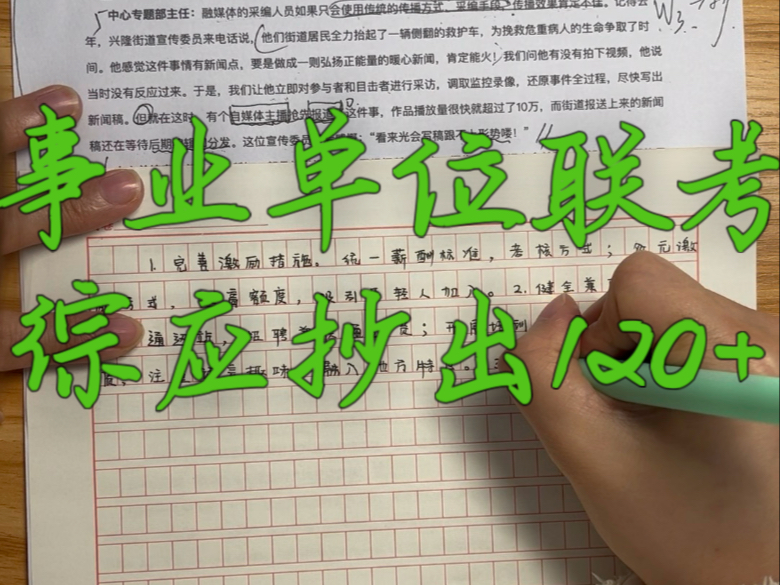 中心专题部主任：融媒体的采编人员如果只会使用传统的传播方式、采编手段，传播效果肯定不佳。记得去
年，兴隆街道宣传委员来电话说，他们街道居民全力抬起了一辆侧翻的救护车，为挽救危重病人的生命争取了时
间。他感觉这件事情有新闻点，要是做成一则弘扬正能量的暖心新闻，肯定能火！我们问他有没有拍下视频，他说
当时没有反应过来。于是，我们让他立即对参与者和目击者进行采访，调取监控录像，还原事件全过程，尽快写出
新闻稿。但就在这时，有个自媒体主播抢先报道了这件事，作品播放量很快就超过了10万，而街道报送上来的新闻
稿还在等待后期 分发。这位宣传委员 ：“看来光会写稿跟不上形势喽！”
事业单位联考
1. 完善激励措施。统一薪酬标准，考核方式；多元激
式， 额度，吸引 轻人加入。2. 健全
综应抄出120+
聘 ；开
注 趣味 融入地方特 。3